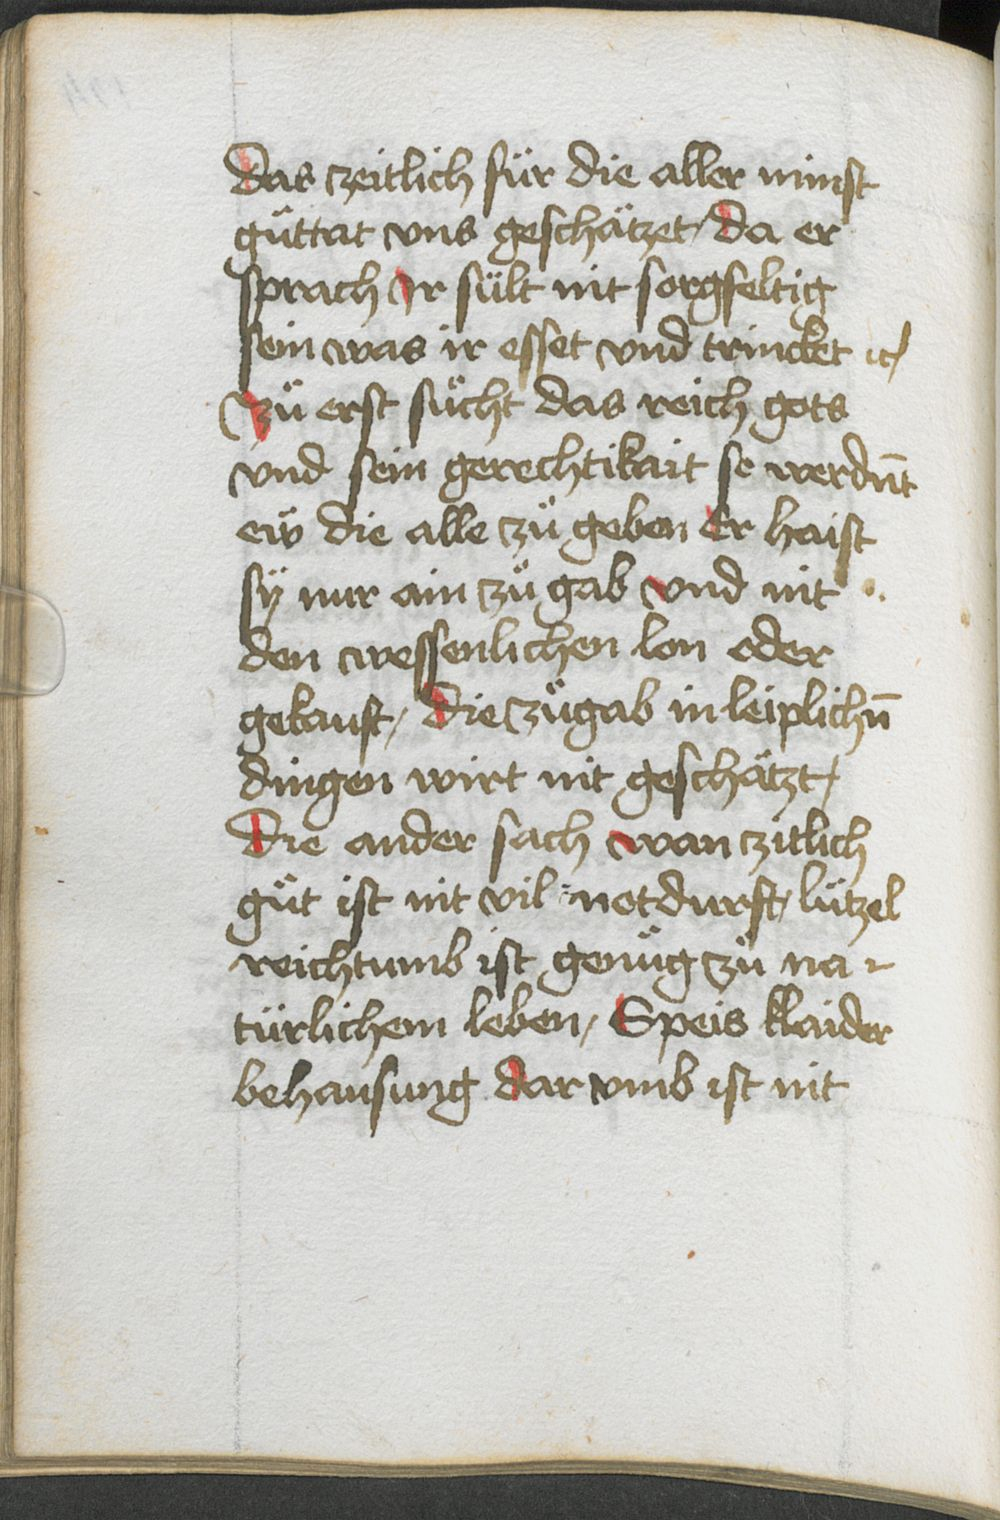 Das zeitlich für die aller minst
güttat vns geschätzet / Da er
sprach Ir sült nit sorgfeltig
sein was ir esset vnd trincket ꝛc /
Zü erst sücht das reich gots
vnd sein gerechtikait so werdn̄t
eẅ die alle zü geben Er haist
sÿ nur ain zü gab vnd nit
den wessenlichen lon oder
gekauft / Die zügab in leiplichn̄
dingen wirt nit geschätzt /
Die ander sach wan zitlich
güt ist nit vil notdurft / lützel
reichtumb ist genüg zü na
türlichem leben / Speis klaider
behausung Dar vmb ist nit